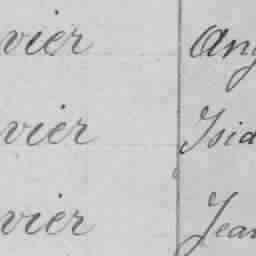 vier Ang
vier Isid
vier Jean